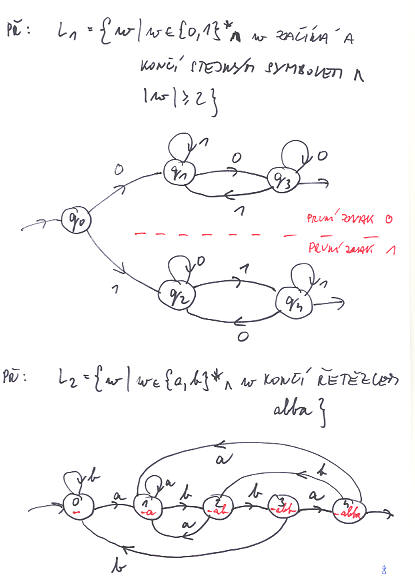 PŘ: L1 = {w | w ∈ {0,1}* ∧ w ZAČÍNÁ A
KONČÍ STEJNÝM SYMBOLEM ∧
|w| ≥ 2}
1 0
0 0
q1 q3
1
q0
PRVNÍ ZNAK 0
PRVNÍ ZNAK 1
0 1 1
1
q2 q4
0
PŘ: L2 = {w | w ∈ {a,b}* ∧ w KONČÍ ŘETĚZCEM
abba}
a
b a b
0 a 1 b 2 b 3 a 4
- -a -ab -abb -abba
a
b
8